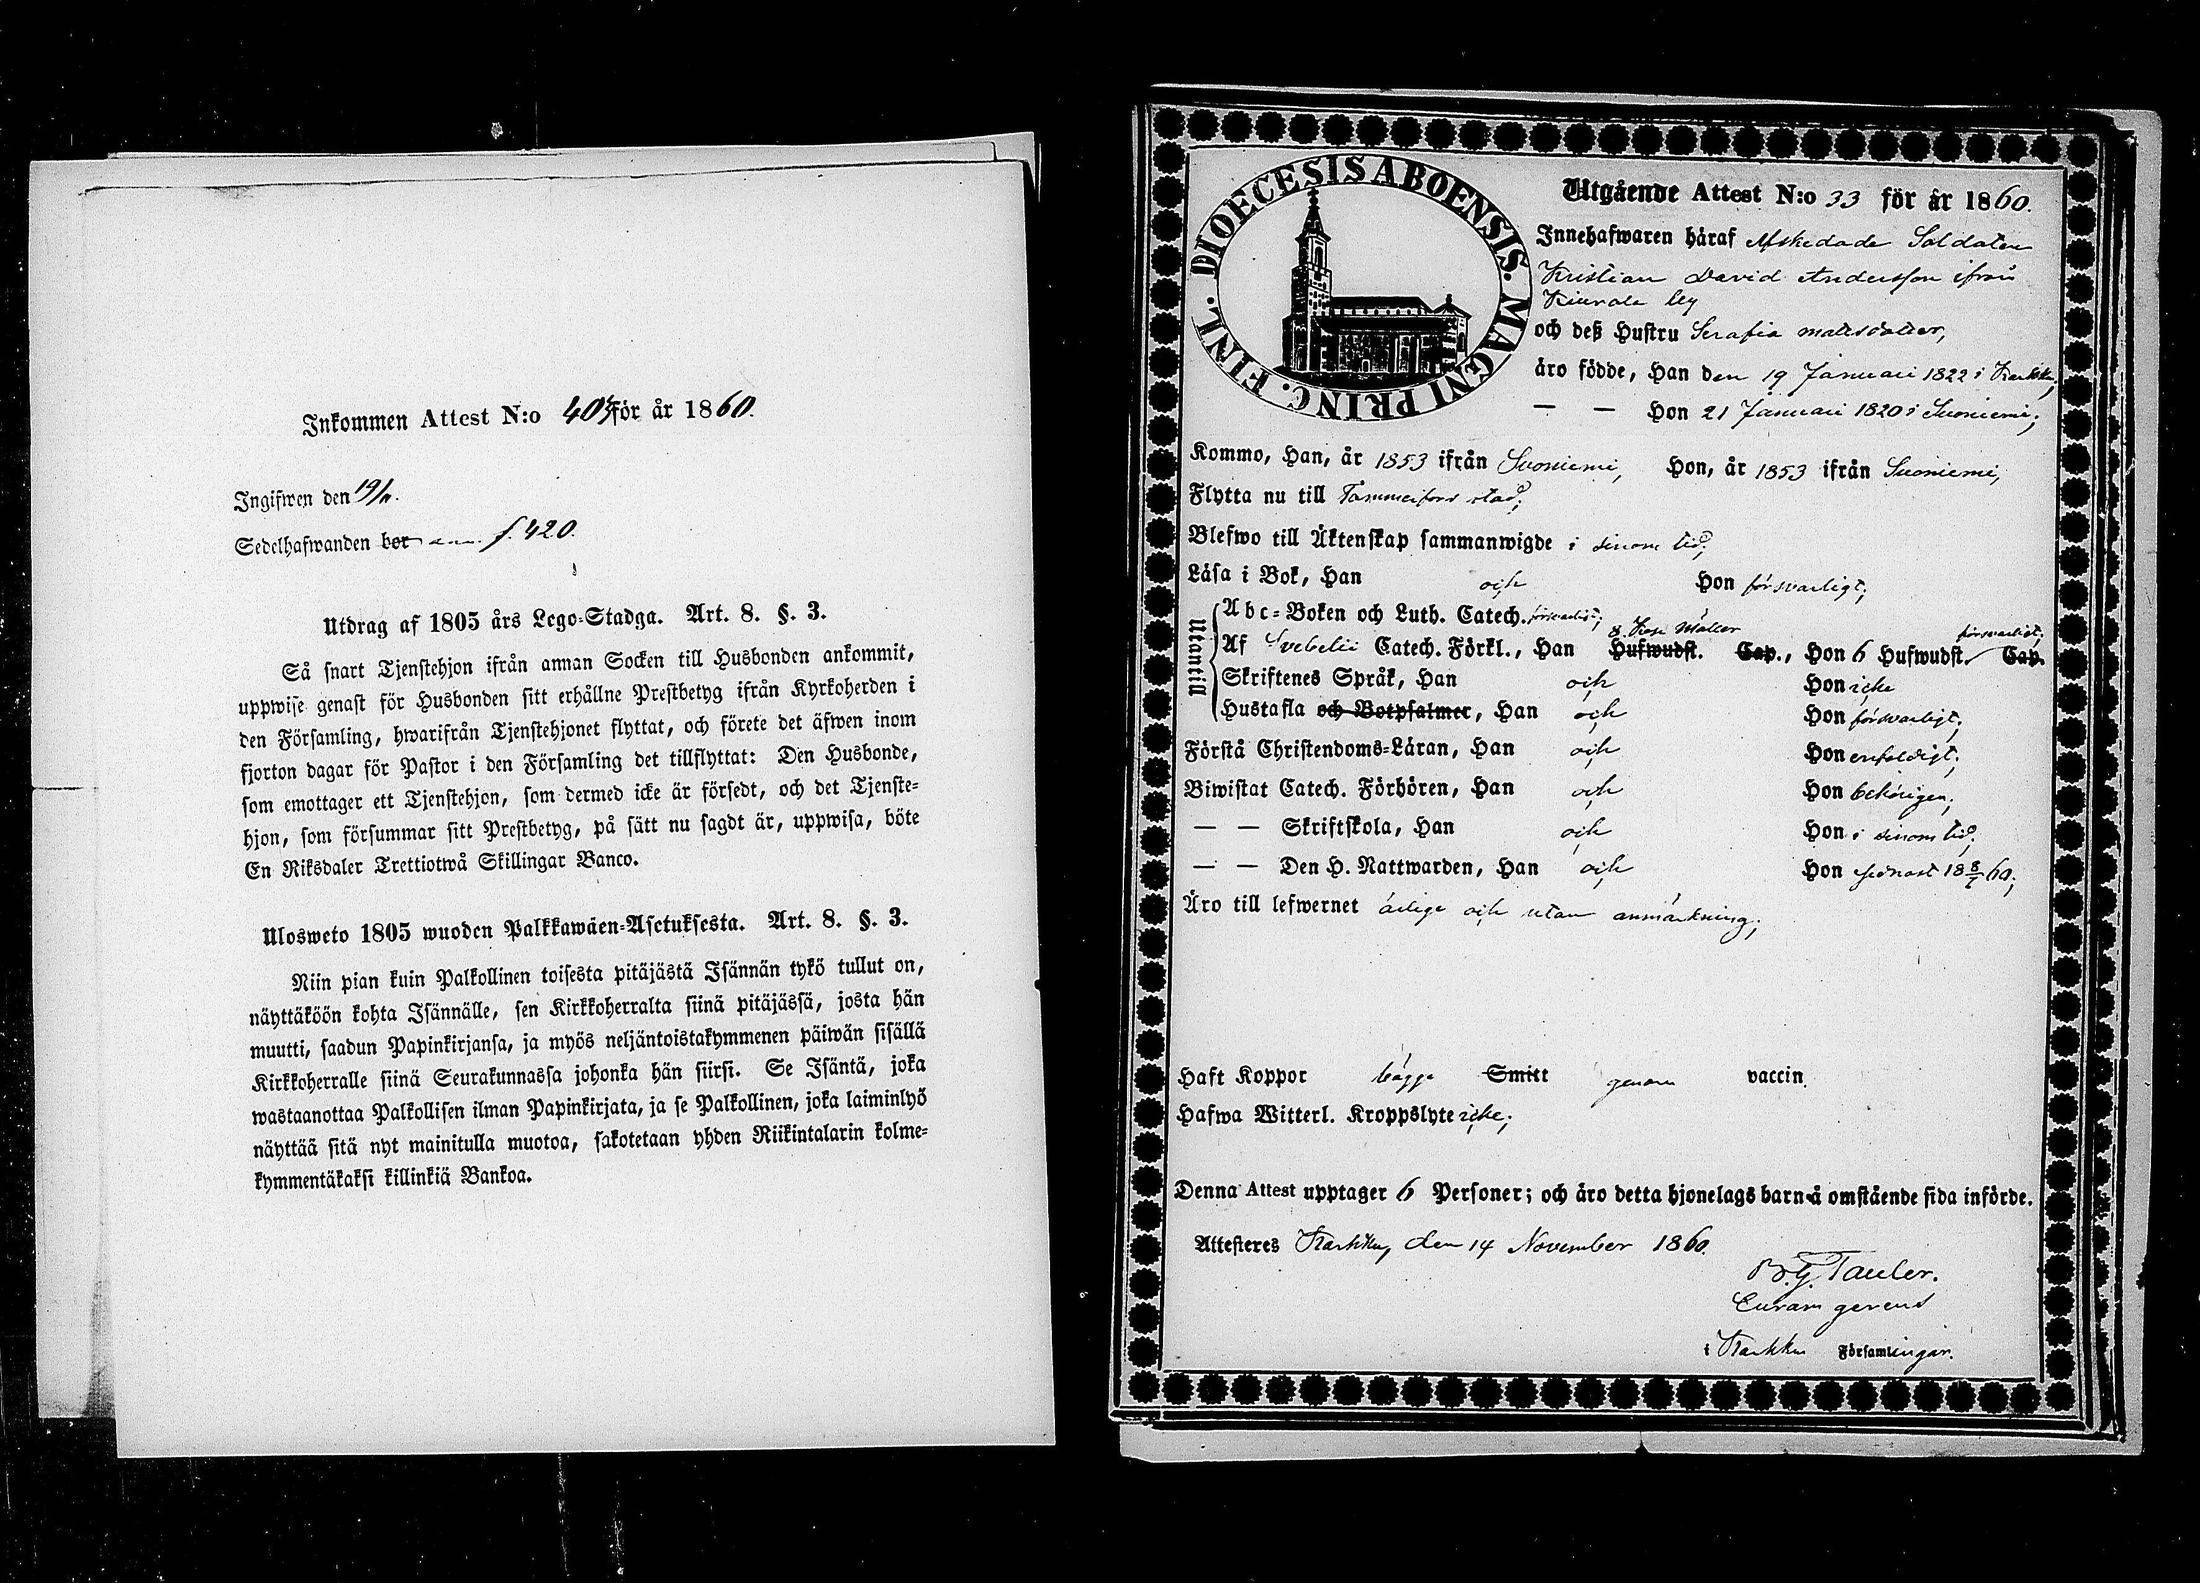 Inkommen Attest N:o 405 för år 1860.
Ingifwen den 19/11.
Sedelhafwanden bor f. 420.
Utdrag af 1805 års Lego-Stadga. Art. 8. §. 3.
Så snart Tjenstehjon ifrån annan Socken till Husbonden ankommit,
uppwise genast för Husbonden sitt erhållne Prestbetyg ifrån Kyrkoherden i
den Församling, hwarifrån Tjenstehjonet flyttat, och förete det äfwen inom
fjorton dagar för Pastor i den Församling det tillflyttat: Den Husbonde,
som emottager ett Tjenstehjon, som dermed icke är försedt, och det Tjenste-
hjon, som försummar sitt Prestbetyg, på sätt nu sagdt är, uppwisa, böte
En Riksdaler Trettiotwå Skillingar Banco.
Ulosweto 1805 wuoden Palkkawäen-Asetuksesta. Art. 8. §. 3.
Niin pian kuin Palkollinen toisesta pitäjästä Isännän tykö tullut on,
näyttäköön kohta Isännälle, sen Kirkkoherralta siinä pitäjässä, josta hän
muutti, saadun Papinkirjansa, ja myös neljäntoistakymmenen päiwän sisällä
Kirkkoherralle siinä Seurakunnassa johonka hän siirsi. Se Isäntä, joka
wastaanottaa Palkollisen ilman Papinkirjata, ja se Palkollinen, joka laiminlyö
näyttää sitä nyt mainitulla muotoa, sakotetaan yhden Riikintalarin kolme-
kymmentäkaksi killinkiä Bankoa.
DIOECESIS ABOENSIS. MAGNI PRINC. FINL.
Utgående Attest N:o 33 för år 1860.
Innehafwaren häraf Afskedade Soldaten
Kristian David Andersson ifrån
Kiurala by
och deß Hustru Serafia Mattsdotter,
äro födde, Han den 19 Januari 1822 i Karkku,
— — Hon 21 Januari 1820 i Suoniemi;
Kommo, Han, år 1853 ifrån Suoniemi, Hon, år 1853 ifrån Suoniemi,
Flytta nu till Tammerfors stad;
Blefwo till Äktenskap sammanwigde i sinom tid;
Läsa i Bok, Han och Hon försvarligt;
Utantill
Abc-Boken och Luth. Catech. försvarligt;
Af Svebelii Catech. Förkl., Han 8. Hufwudst. Cap., Hon 6 Hufwudst. Cap. försvarligt;
Skriftenes Språk, Han och Hon icke
Hustafla och Botpsalmer, Han och Hon försvarligt;
Förstå Christendoms-Läran, Han och Hon enfaldigt;
Biwistat Catech. Förhören, Han och Hon behörigen;
— — Skriftskola, Han och Hon i sinom tid;
— — Den H. Nattwarden, Han och Hon sednast 18 8/7 60;
Äro till lefwernet ärlige och utan anmärkning;
Haft Koppor bägge Smitt genom vaccin
Hafwa Witterl. Kroppslyte icke;
Denna Attest upptager 6 Personer; och äro detta hjonelags barn å omstående sida införde.
Attesteres Karkku, den 14 November 1860.
B. G. Tauler.
Curam gerens
i Karkku Församlingar.